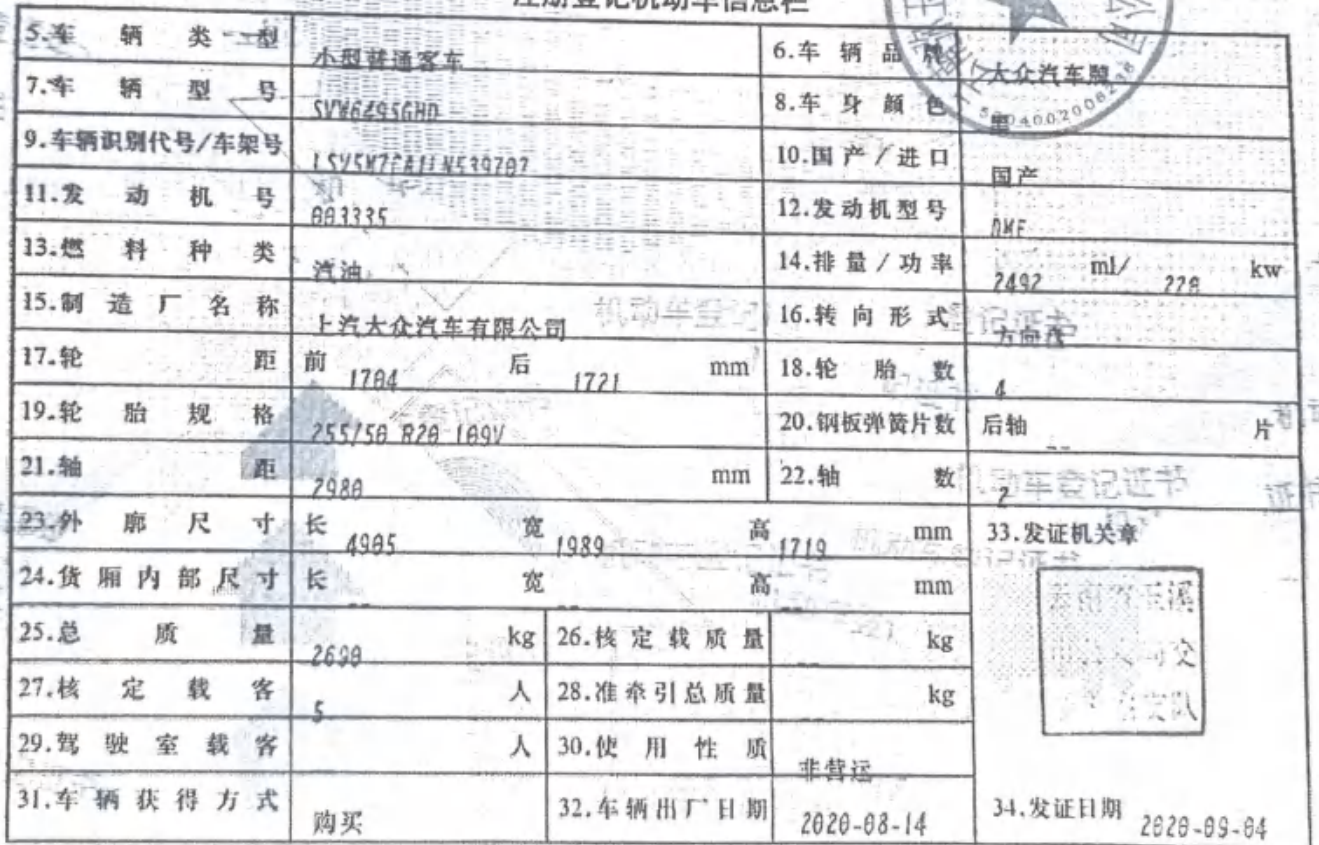 注册登记机动车信息栏
5.车辆类型 小型普通客车 6.车辆品牌 大众汽车牌
7.车辆型号 SVW6495GHD 8.车身颜色 黑
9.车辆识别代号/车架号 10.国产/进口 国产
11.发动机号 003335 12.发动机型号 DMF
13.燃料种类 汽油 14.排量/功率 2492 ml/ 220 kw
15.制造厂名称 上汽大众汽车有限公司 16.转向形式 方向盘
17.轮距 前 1704 后 1721 mm 18.轮胎数 4
19.轮胎规格 255/50 R20 109V 20.钢板弹簧片数 后轴 片
21.轴距 2980 mm 22.轴数 2
23.外廓尺寸 长 4905 宽 1989 高 1719 mm 33.发证机关章
24.货厢内部尺寸 长 -- 宽 -- 高 -- mm
25.总质量 2690 kg 26.核定载质量 -- kg
27.核定载客 5 人 28.准牵引总质量 kg
29.驾驶室载客 人 30.使用性质 非营运
31.车辆获得方式 购买 32.车辆出厂日期 2020-08-14 34.发证日期 2020-09-04